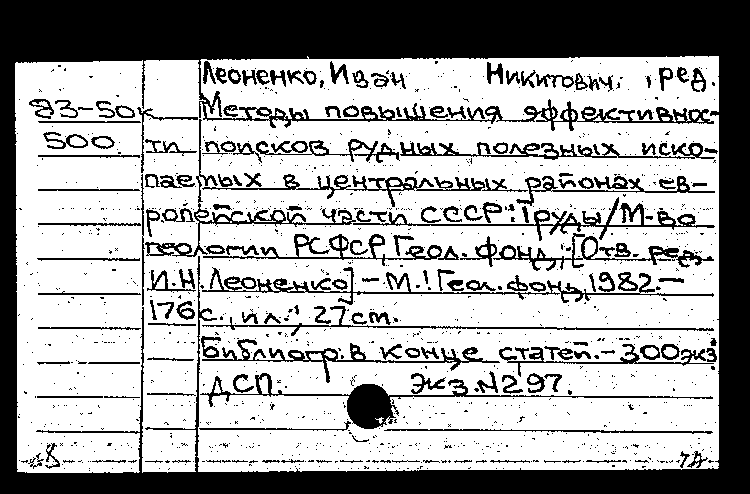 Леоненко, Иван Никитович, ред.
93-50к Методы повышения эффективнос-
500 ти поисков рудных полезных иско-
паемых в центральных районах ев-
ропейской части СССР: Труды/М-во
геологии РСФСР, Геол. фонд,; [Отв. ред.
И.Н. Леоненко] - М.: Геол. фонд, 1982 -
176 с., ил.; 27 см.
Библиогр. в конце статей. - 300 экз
ДСП. Экз. N297.